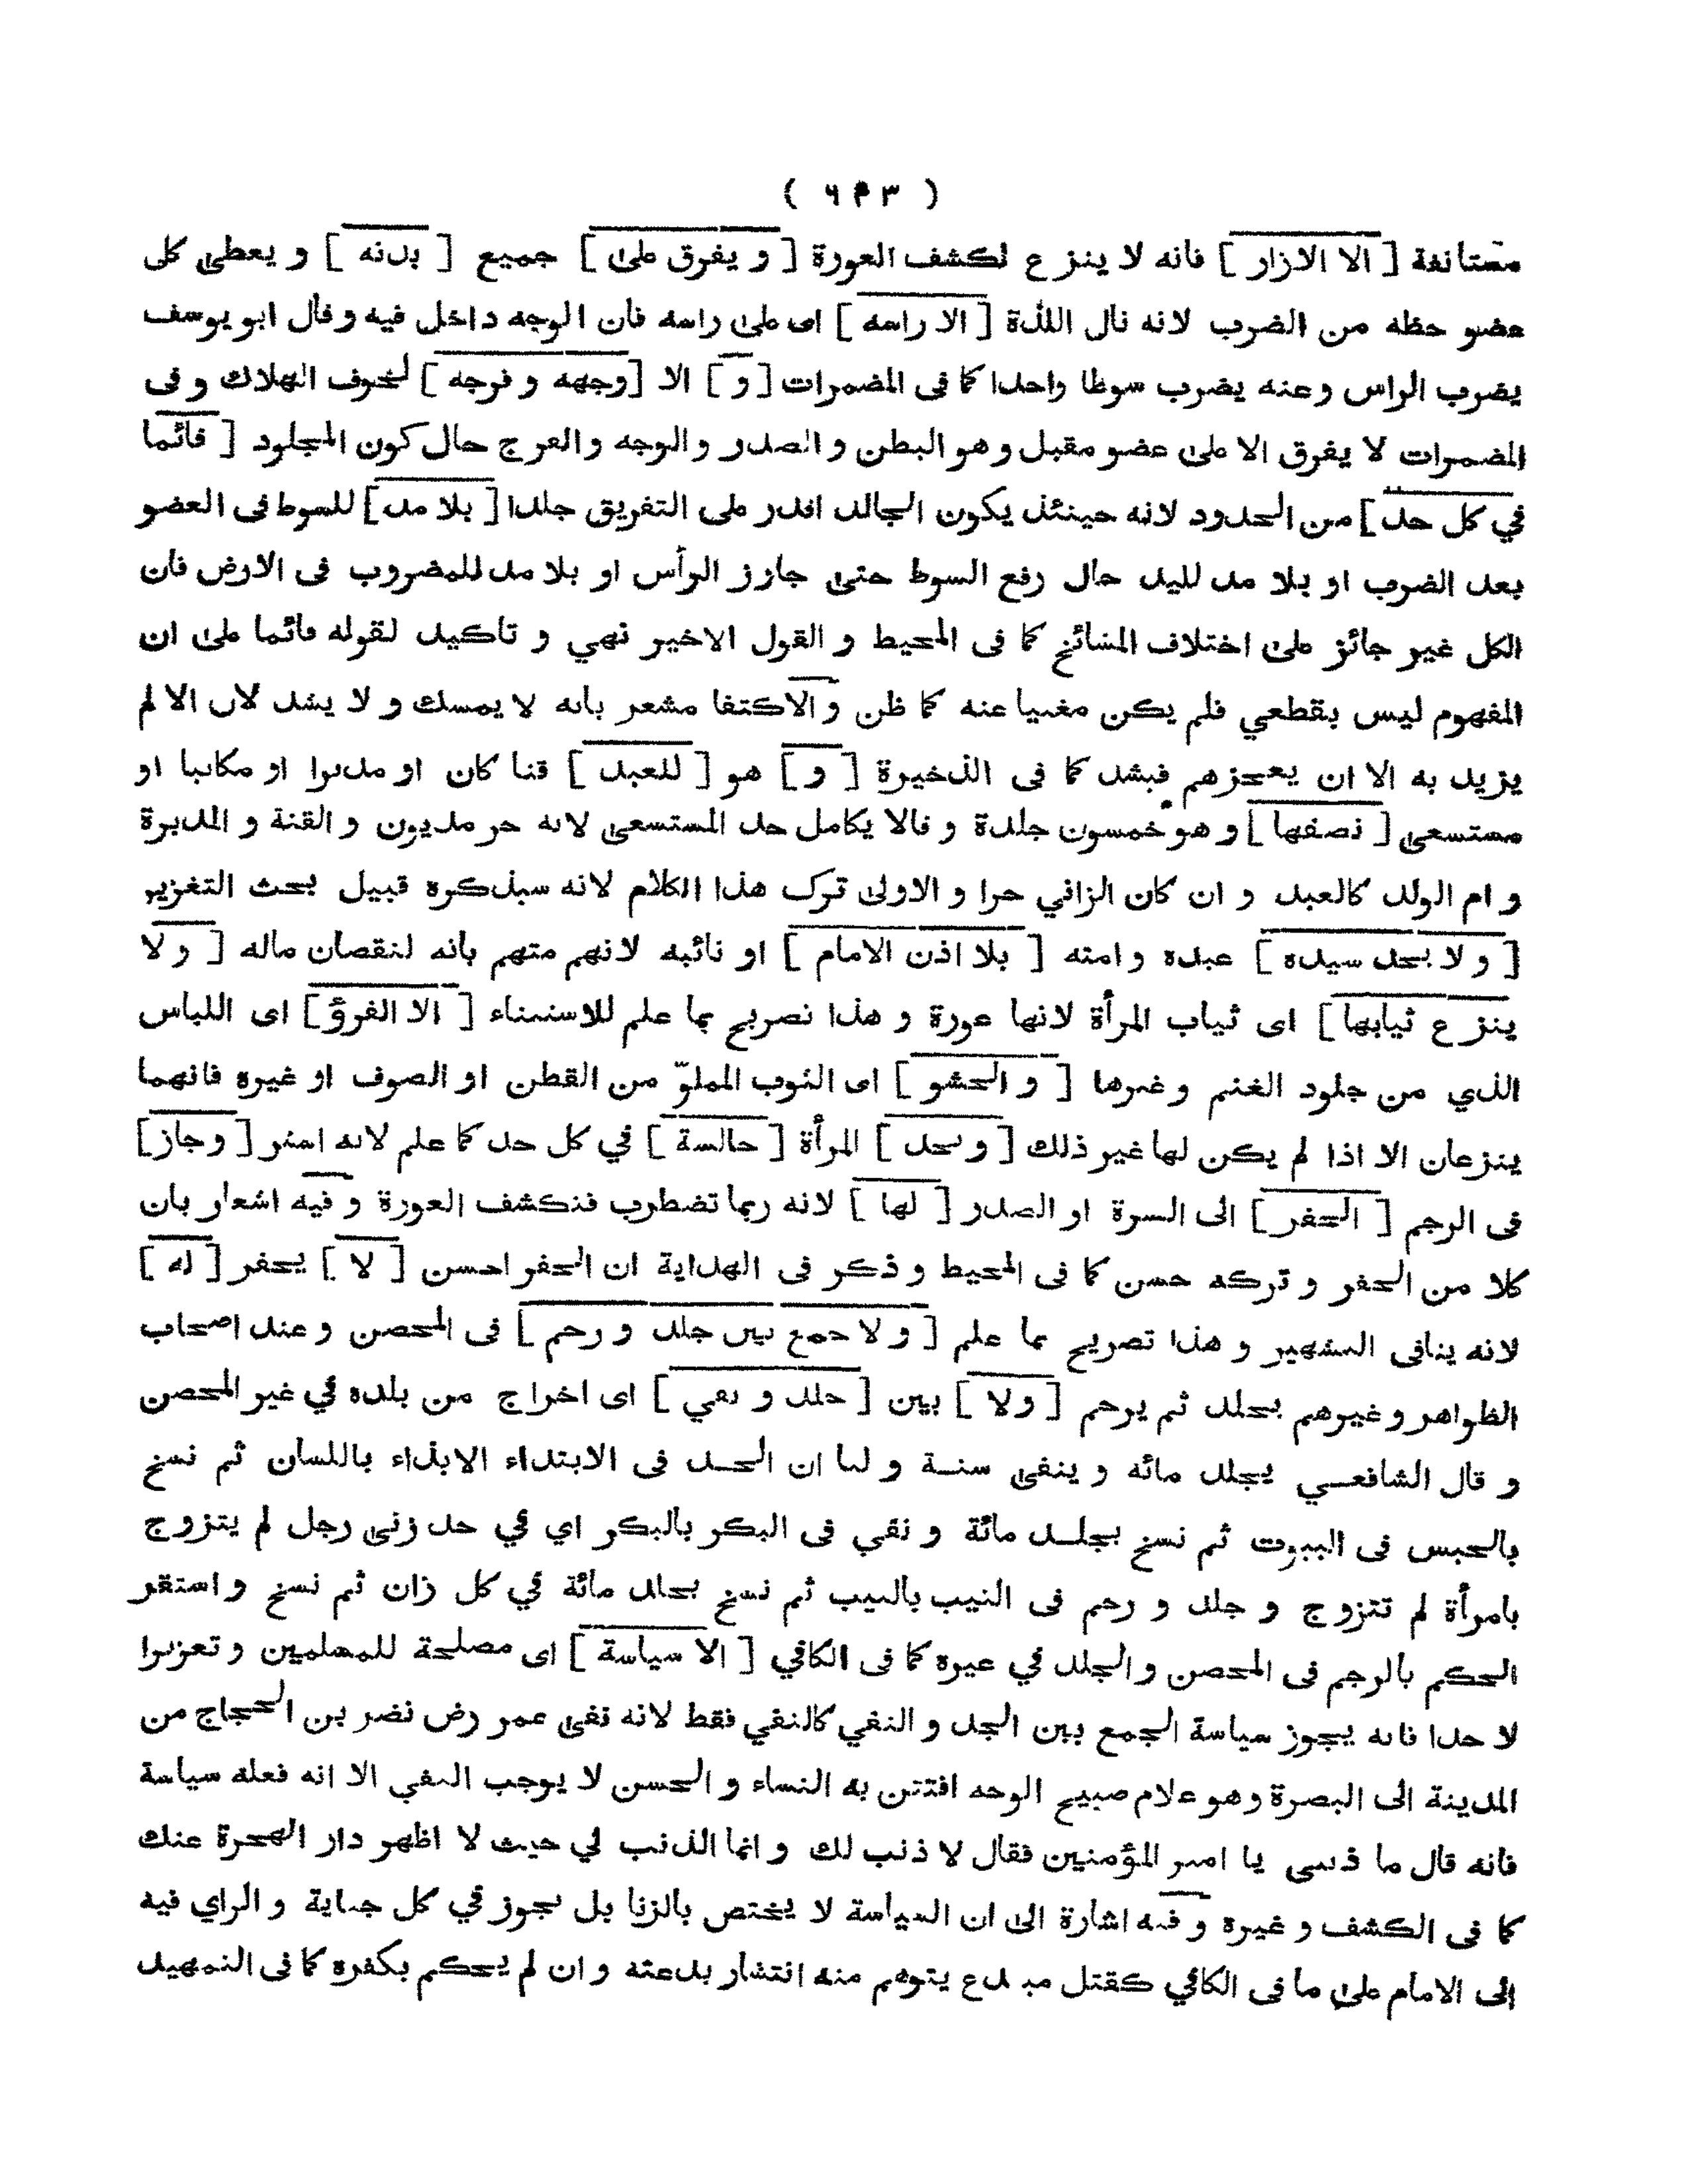 ( ٦٥٣ )
مستانفة [ الا الازار ] فانه لا ينزع لكشف العورة [ و يفرق على ] جميع [ بدنه ] و يعطى كل
عضو حظه من الضرب لانه نال اللذة [ الا راسه ] اى على راسه فان الوجه داخل فيه و قال ابو يوسف
يضرب الراس و عنه يضرب سوطا واحدا كما فى المضمرات [ و ] الا [ وجهه و فرجه ] لخوف الهلاك و فى
المضمرات لا يفرق الا على عضو مقبل و هو البطن و الصدر و الوجه و الفرج حال كون المجلود [ قائما
في كل حد ] من الحدود لانه حينئذ يكون الجالد اقدر على التفريق جلدا [ بلا مد ] للسوط فى العضو
بعد الضرب او بلا مد لليد حال رفع السوط حتى جاوز الرأس او بلا مد للمضروب فى الارض فان
الكل غير جائز على اختلاف المشائخ كما فى المحيط و القول الاخير نهي و تاكيد لقوله قائما على ان
المفهوم ليس بقطعي فلم يكن مغنيا عنه كما ظن و الاكتفا مشعر بانه لا يمسك و لا يشد لان الالم
يزيد به الا ان يعجزهم فيشد كما فى الذخيرة [ و ] هو [ للعبد ] قنا كان او مدبرا او مكاتبا او
مستسعى [ نصفها ] و هو خمسون جلدة و قالا يكامل حد المستسعى لانه حر مديون و القنة و المدبرة
و ام الولد كالعبد و ان كان الزاني حرا و الاولى ترك هذا الكلام لانه سيذكره قبيل بحث التعزير
[ و لا يحد سيده ] عبده و امته [ بلا اذن الامام ] او نائبه لانهم متهم بانه لنقصان ماله [ و لا
ينزع ثيابها ] اى ثياب المرأة لانها عورة و هذا تصريح بما علم للاستثناء [ الا الفرو ] اى اللباس
الذي من جلود الغنم و غيرها [ و الحشو ] اى الثوب المملو من القطن او الصوف او غيره فانهما
ينزعان الا اذا لم يكن لها غير ذلك [ و تحد ] المرأة [ جالسة ] في كل حد كما علم لانه استر [ و جاز ]
فى الرجم [ الحفر ] الى السرة او الصدر [ لها ] لانه ربما تضطرب فتكشف العورة و فيه اشعار بان
كلا من الحفر و تركه حسن كما فى المحيط و ذكر فى الهداية ان الحفر احسن [ لا ] يحفر [ له ]
لانه ينافى التشهير و هذا تصريح بما علم [ و لا جمع بين جلد و رجم ] فى المحصن و عند اصحاب
الظواهر و غيرهم يجلد ثم يرجم [ و لا ] بين [ جلد و نفي ] اى اخراج من بلده في غير المحصن
و قال الشافعي يجلد مائه و ينفى سنة و لنا ان الحد فى الابتداء الايذاء باللسان ثم نسخ
بالحبس فى البيوت ثم نسخ بجلد مائة و نفي فى البكر بالبكر اي في حد زنى رجل لم يتزوج
بامرأة لم تتزوج و جلد و رجم فى الثيب بالثيب ثم نسخ بجلد مائة في كل زان ثم نسخ و استقر
الحكم بالرجم فى المحصن و الجلد في غيره كما فى الكافي [ الا سياسة ] اى مصلحة للمسلمين و تعزيرا
لا حدا فانه يجوز سياسة الجمع بين الجلد و النفي كالنفي فقط لانه نفى عمر رض نضر بن الحجاج من
المدينة الى البصرة و هو غلام صبيح الوجه افتتن به النساء و الحسن لا يوجب النفي الا انه فعله سياسة
فانه قال ما ذنبى يا امير المؤمنين فقال لا ذنب لك و انما الذنب لي حيث لا اظهر دار الهجرة عنك
كما فى الكشف و غيره و فيه اشارة الى ان السياسة لا يختص بالزنا بل يجوز في كل جناية و الراي فيه
الى الامام على ما فى الكافي كقتل مبتدع يتوهم منه انتشار بدعته و ان لم يحكم بكفره كما فى التمهيد